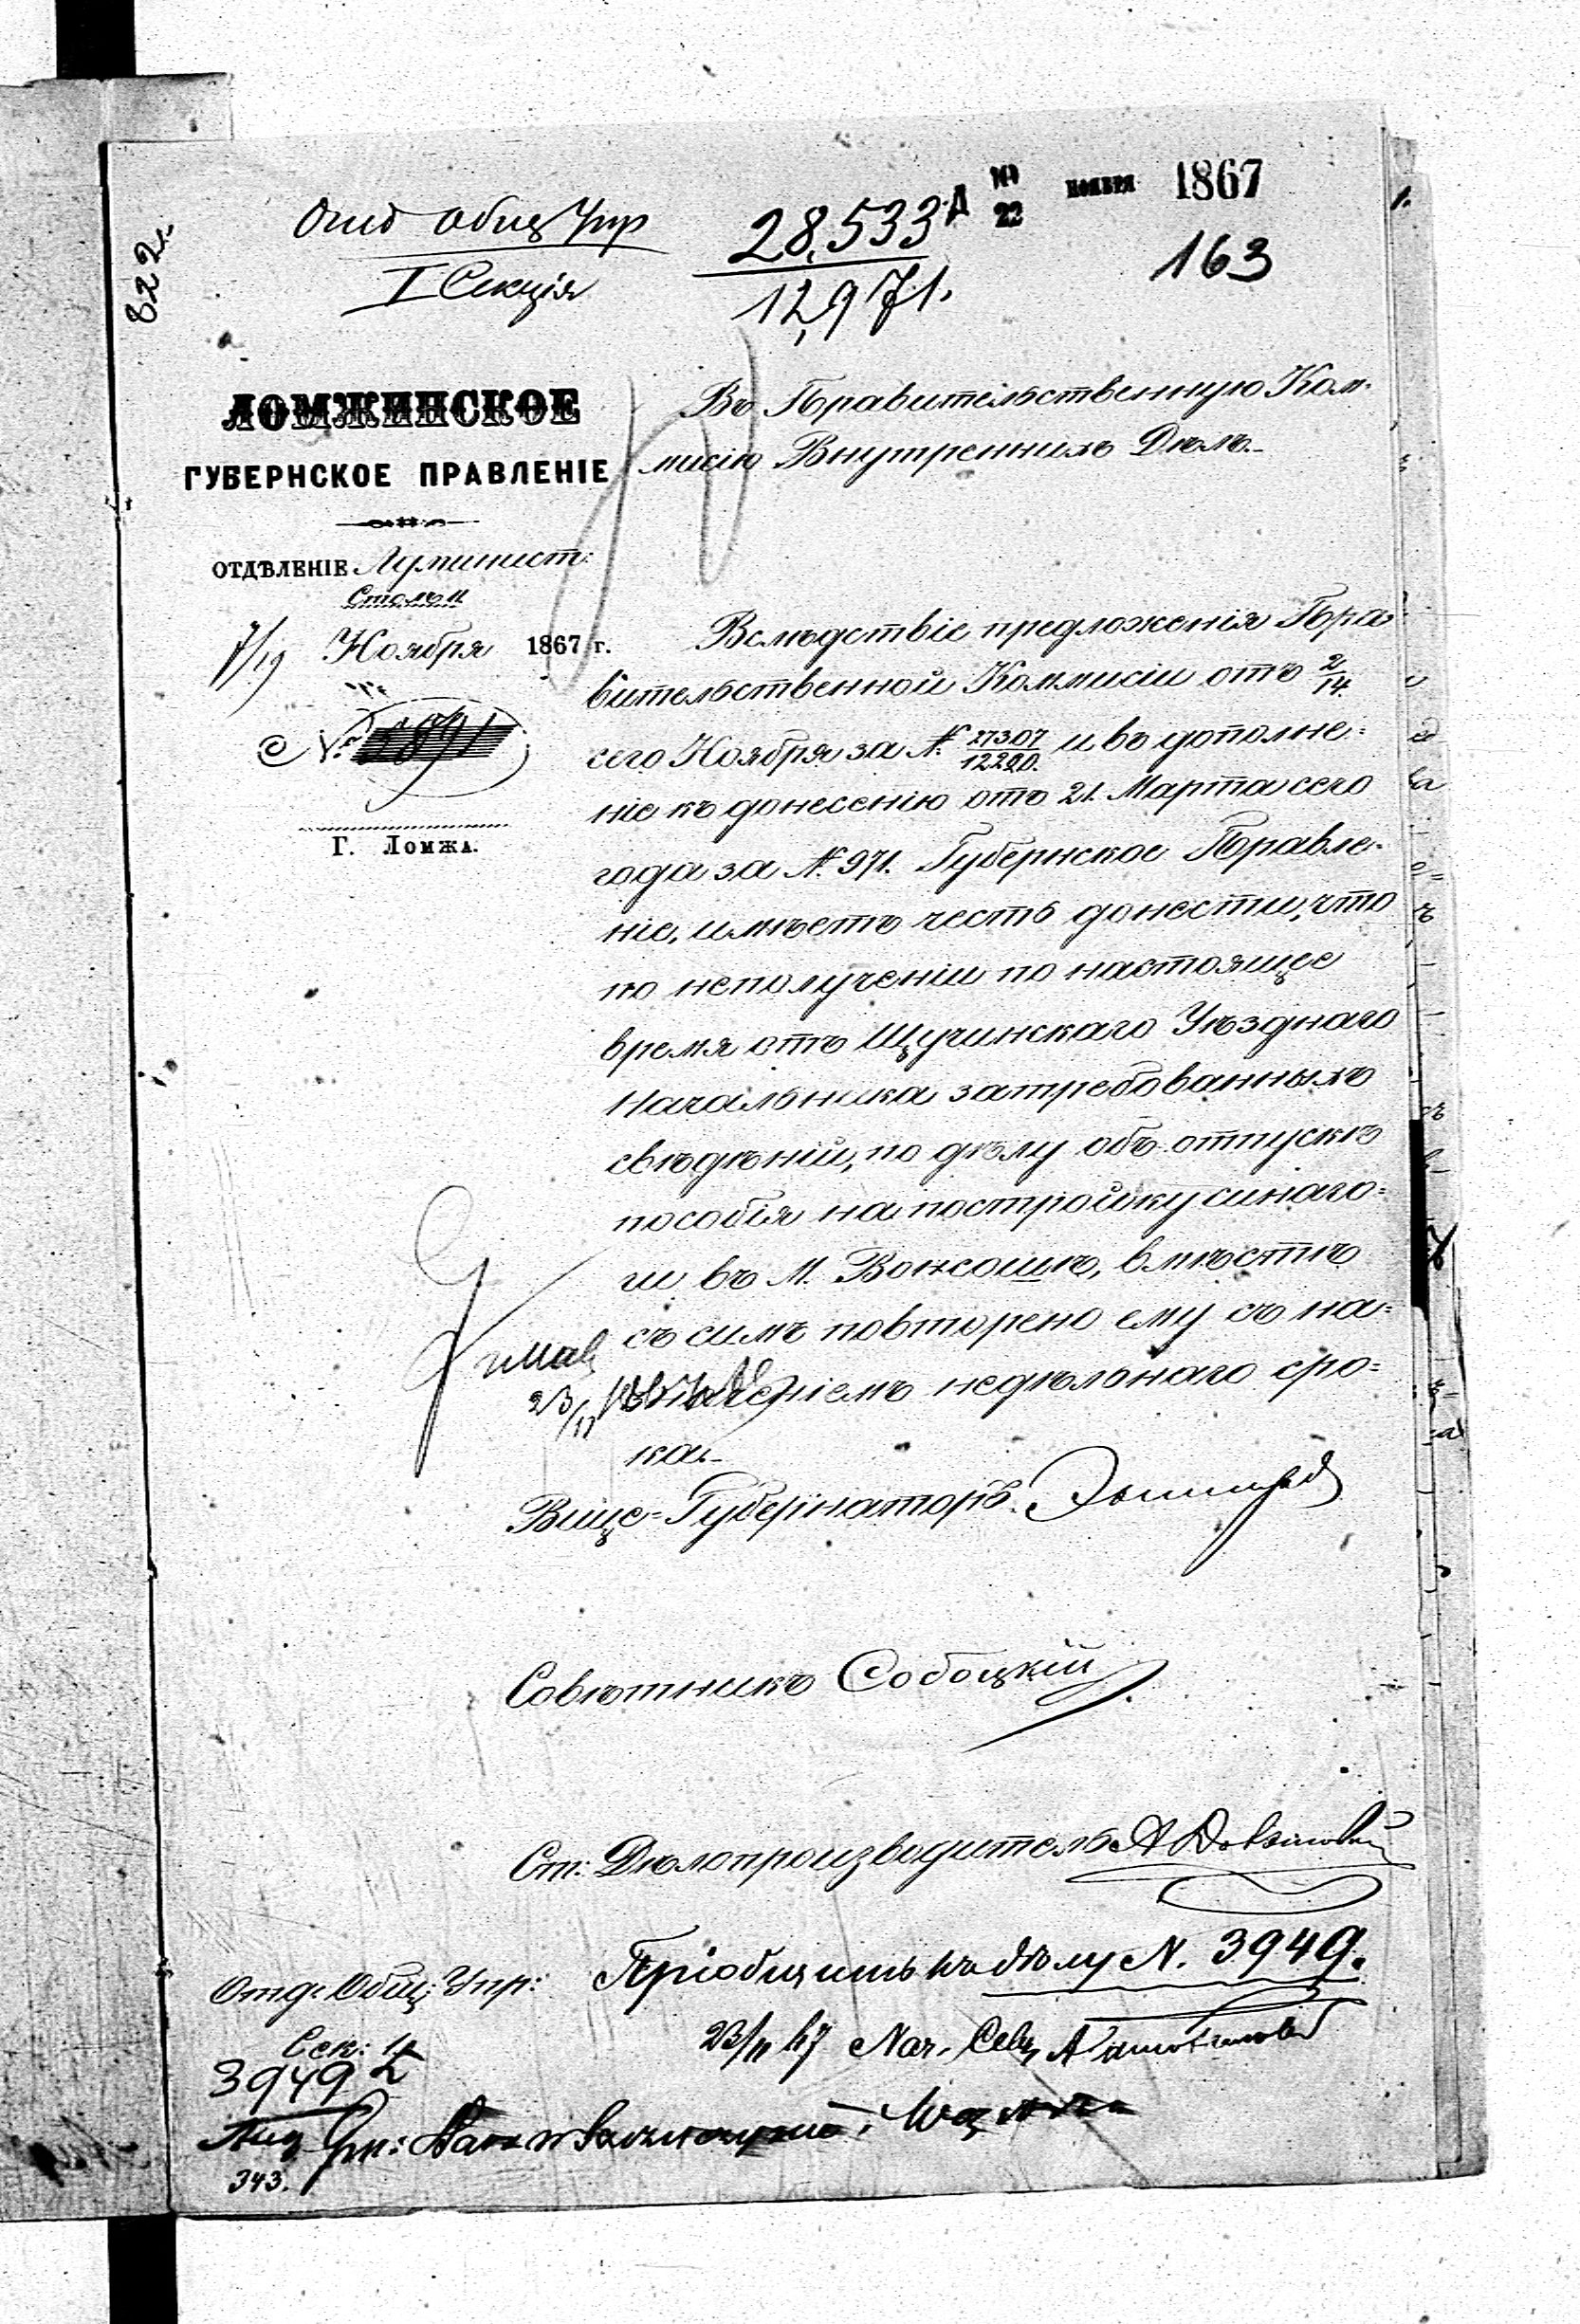 10/22 НОЯБРЯ 1867
Отд Общ Упр
28,533
12,971.
163
I Секція
822
ЛОМЖИНСКОЕ
ГУБЕРНСКОЕ ПРАВЛЕНІЕ
ОТДѢЛЕНІЕ Админист:
Столъ II
7/19 Ноября 1867 г.
№ 1891
Г. Ломжа.
Въ Правительственную Ком-
мисію Внутреннихъ Дѣлъ.
Вслѣдствіе предложенія Пра-
вительственной Коммисіи отъ 2/14
сего Ноября за №. 27307/12290. и въ дополне-
ніе къ донесенію отъ 21. Марта сего
года за №. 971. Губернское Правле-
ніе, имѣетъ честь донести, что
по неполученіи по настоящее
время отъ Щучинскаго Уѣзднаго
Начальника затребованныхъ
свѣдѣній, по дѣлу объ отпускѣ
пособія на постройку синаго-
ги въ М. Вонсошѣ, вмѣстѣ
съ симъ повторено ему съ на-
значеніемъ недѣльнаго сро-
ка.
23/11
Вице-Губернаторъ
Совѣтникъ Собоцкій
Ст: Дѣлопроизводитель А
Отд: Общ: Упр:
Сек: 1
3949
Пріобщить къ дѣлу N. 3949.
23/11 67 Нач. Секц
343.